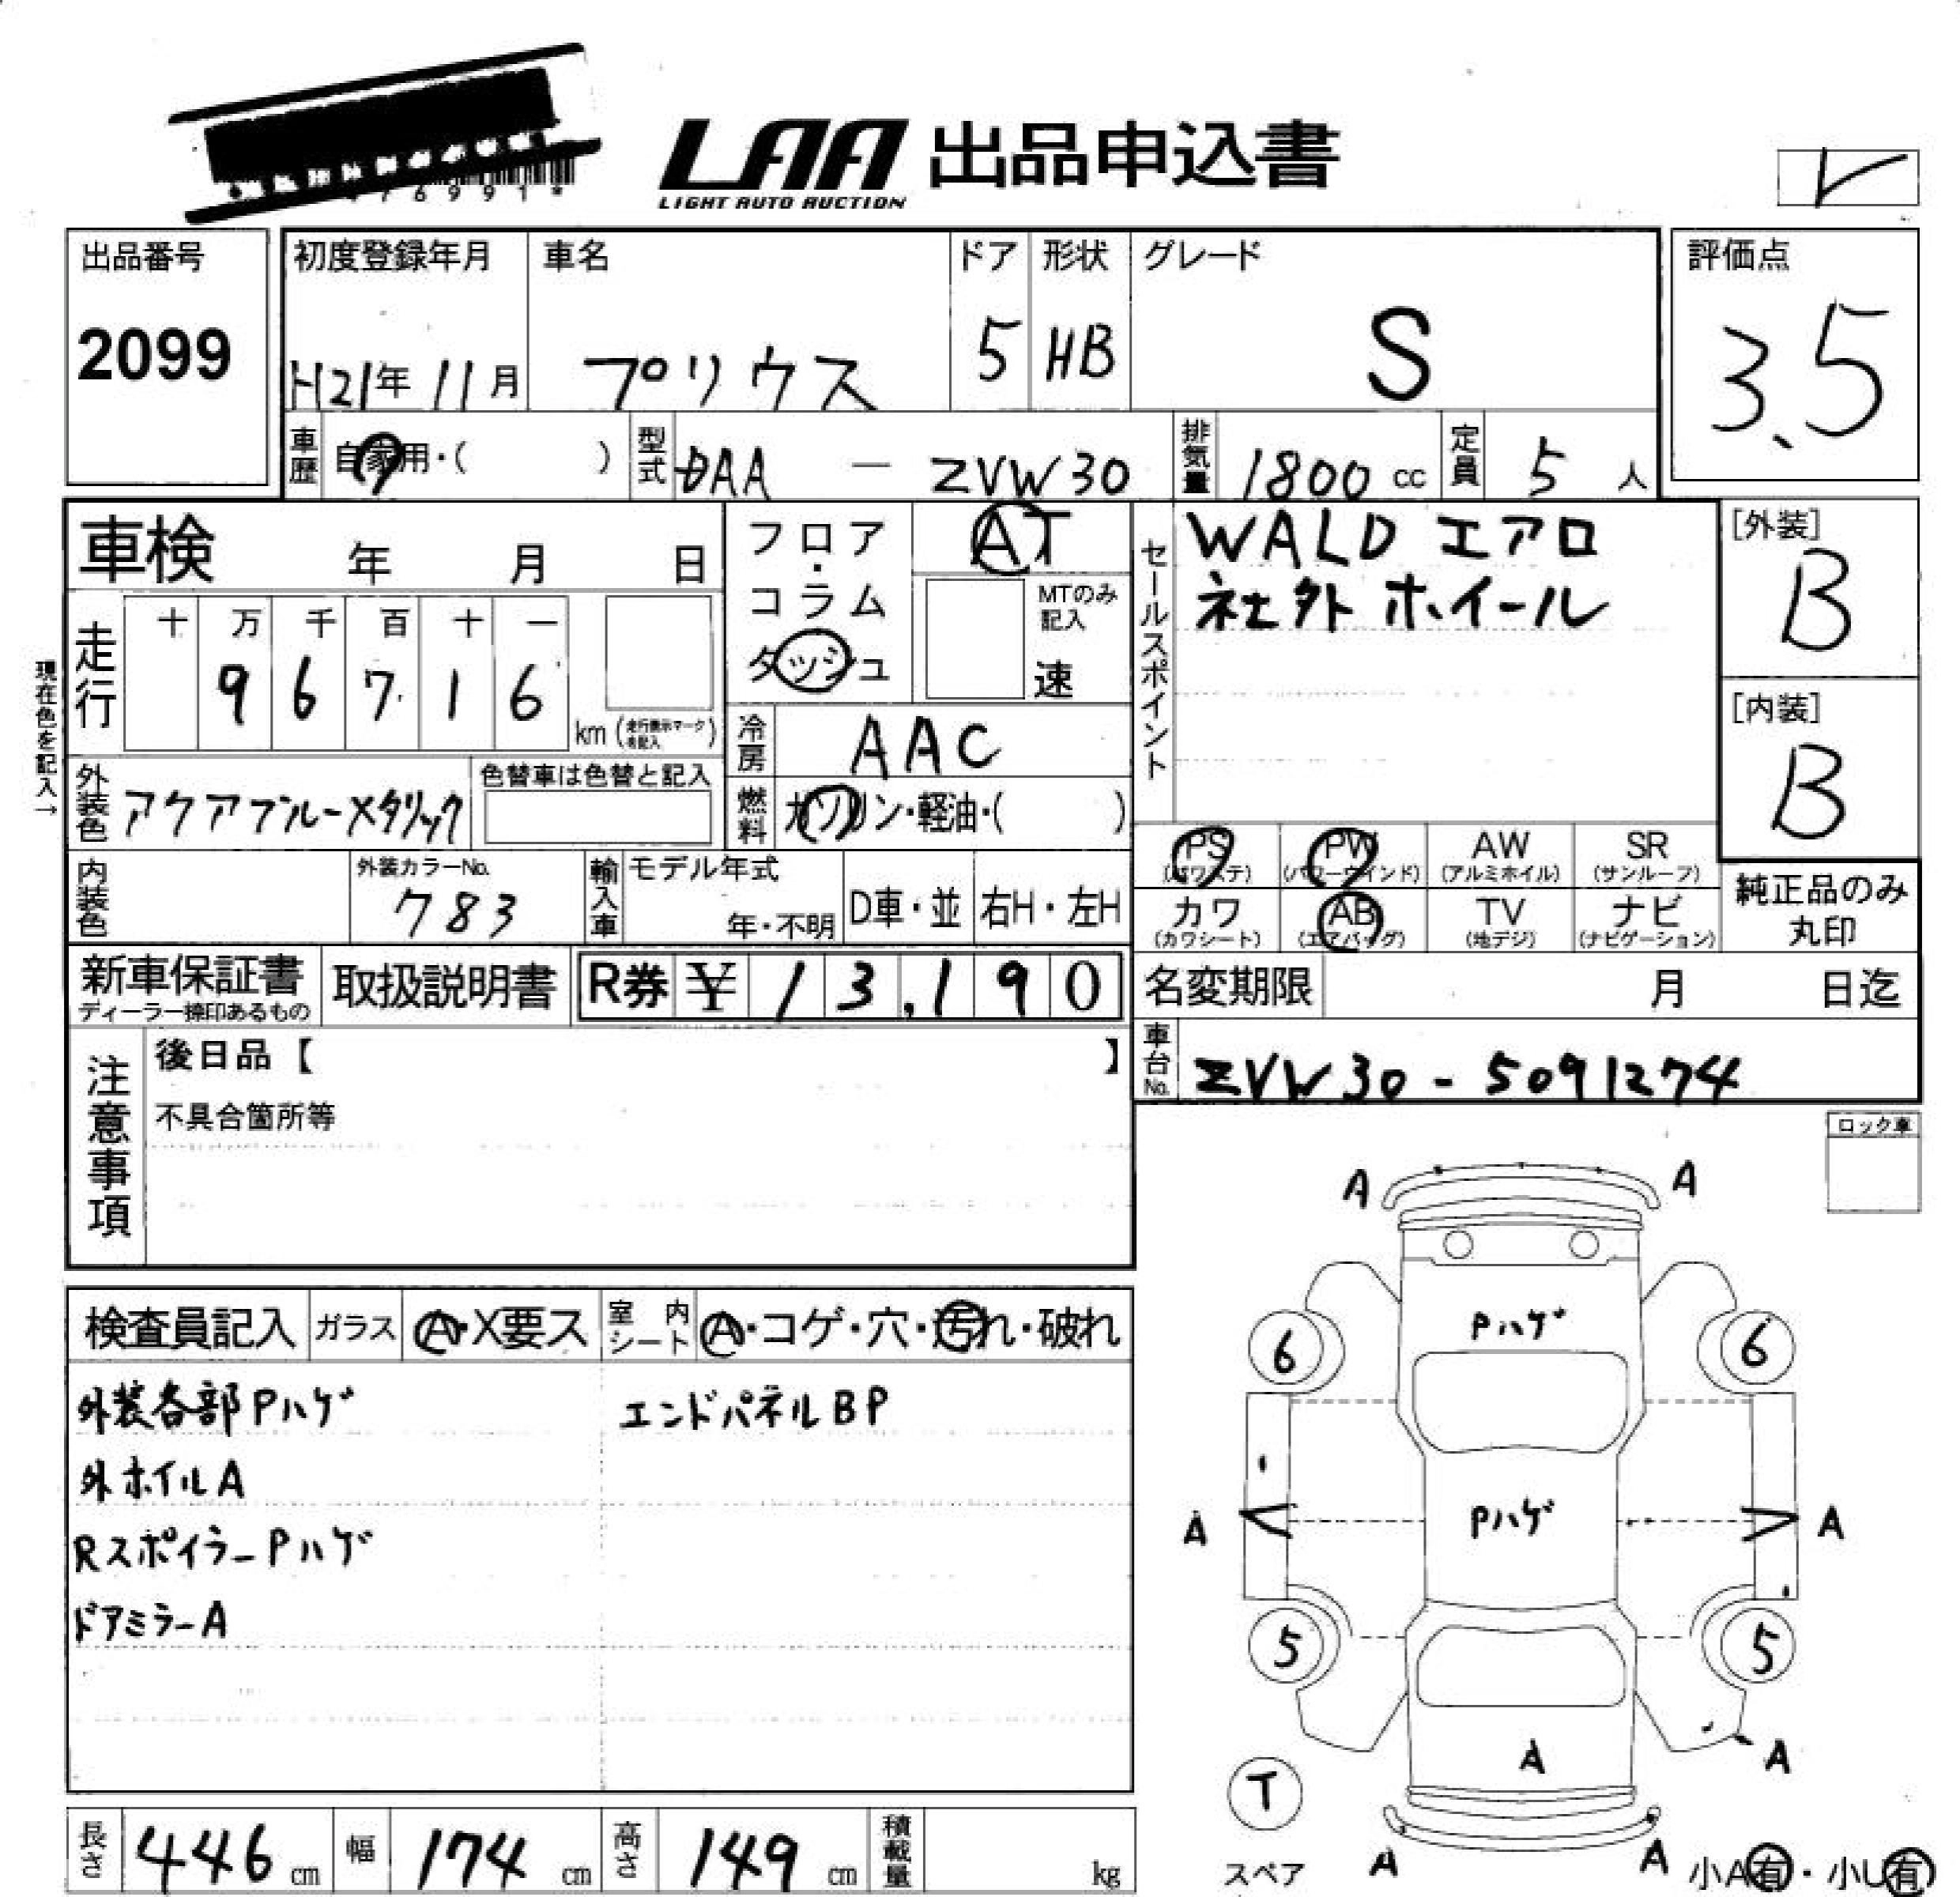 76991*
LAA 出品申込書
LIGHT AUTO AUCTION
出品番号
2099
初度登録年月
H21年11月
車名
プリウス
ドア
5
形状
HB
グレード
S
評価点
3.5
車歴
自家用・( )
型式
DAA - ZVW30
排気量
1800 cc
定員
5 人
車検 年 月 日
フロア・コラム
ダッシュ
AT
MTのみ記入
速
セールスポイント
WALD エアロ
社外 ホイール
[外装]
B
[内装]
B
現在色を記入→
走行
十 万 千 百 十 一
9 6 7 1 6
km
冷房
AAC
外装色
アクアブルーメタリック
色替車は色替と記入
燃料
ガソリン・軽油・( )
PS PW AW SR
(パワステ) (パワーウインド) (アルミホイル) (サンルーフ)
カワ AB TV ナビ
(カワシート) (エアバッグ) (地デジ) (ナビゲーション)
純正品のみ
丸印
内装色
外装カラーNo.
783
輸入車
モデル年式
年・不明
D車・並
右H・左H
新車保証書
取扱説明書
R券 ¥ 13,190
名変期限 月 日迄
注意事項
後日品【 】
不具合箇所等
車台No.
ZVW30-5091274
ロック車
検査員記入
ガラス
A・X要ス
室内シート
A・コゲ・穴・汚れ・破れ
外装各部Pハゲ
エンドパネルBP
外ホイルA
RスポイラーPハゲ
ドアミラーA
A A
Pハゲ
6 6
Pハゲ
A A
5 5
A
A
T
スペア
A A
小A有・小U有
長さ
446 cm
幅
174 cm
高さ
149 cm
積載量
kg